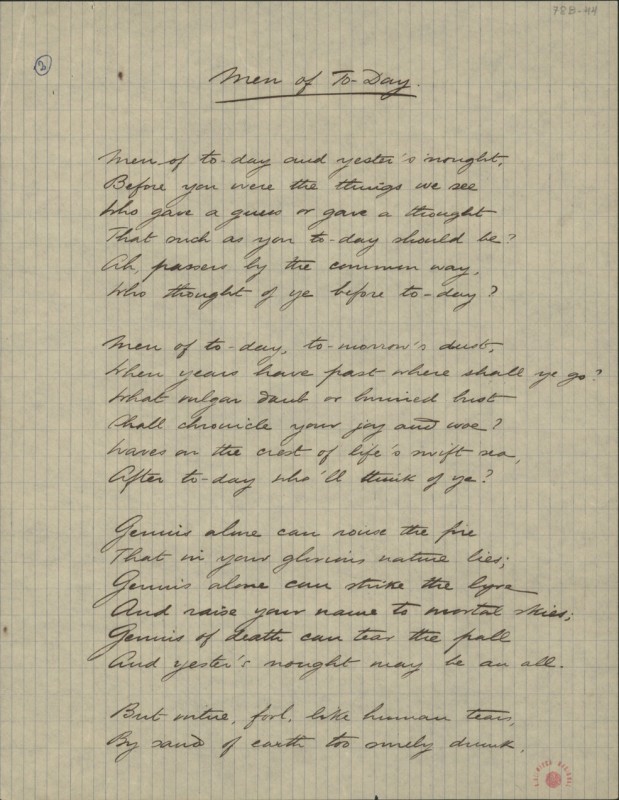 78B-44
2
Men of To-Day.
Men of to-day and yester's nought,
Before you were the things we see
Who gave a guess or gave a thought
That such as you to-day should be?
Ah, passers by the common way,
Who thought of ye before to-day?
Men of to-day, to-morrow's dust,
When years have past where shall ye go?
What vulgar daub or bust
Shall chronicle your joy and woe?
Waves on the crest of life's swift sea,
After to-day who'll think of ye?
Genius alone can rouse the fire
That in your glorious nature lies;
Genius alone can strike the lyre
And raise your name to mortal skies;
Genius of death can tear the pall
And yester's nought may be an all.
But virtue, fool, like human tears,
By sand of earth too surely drunk,